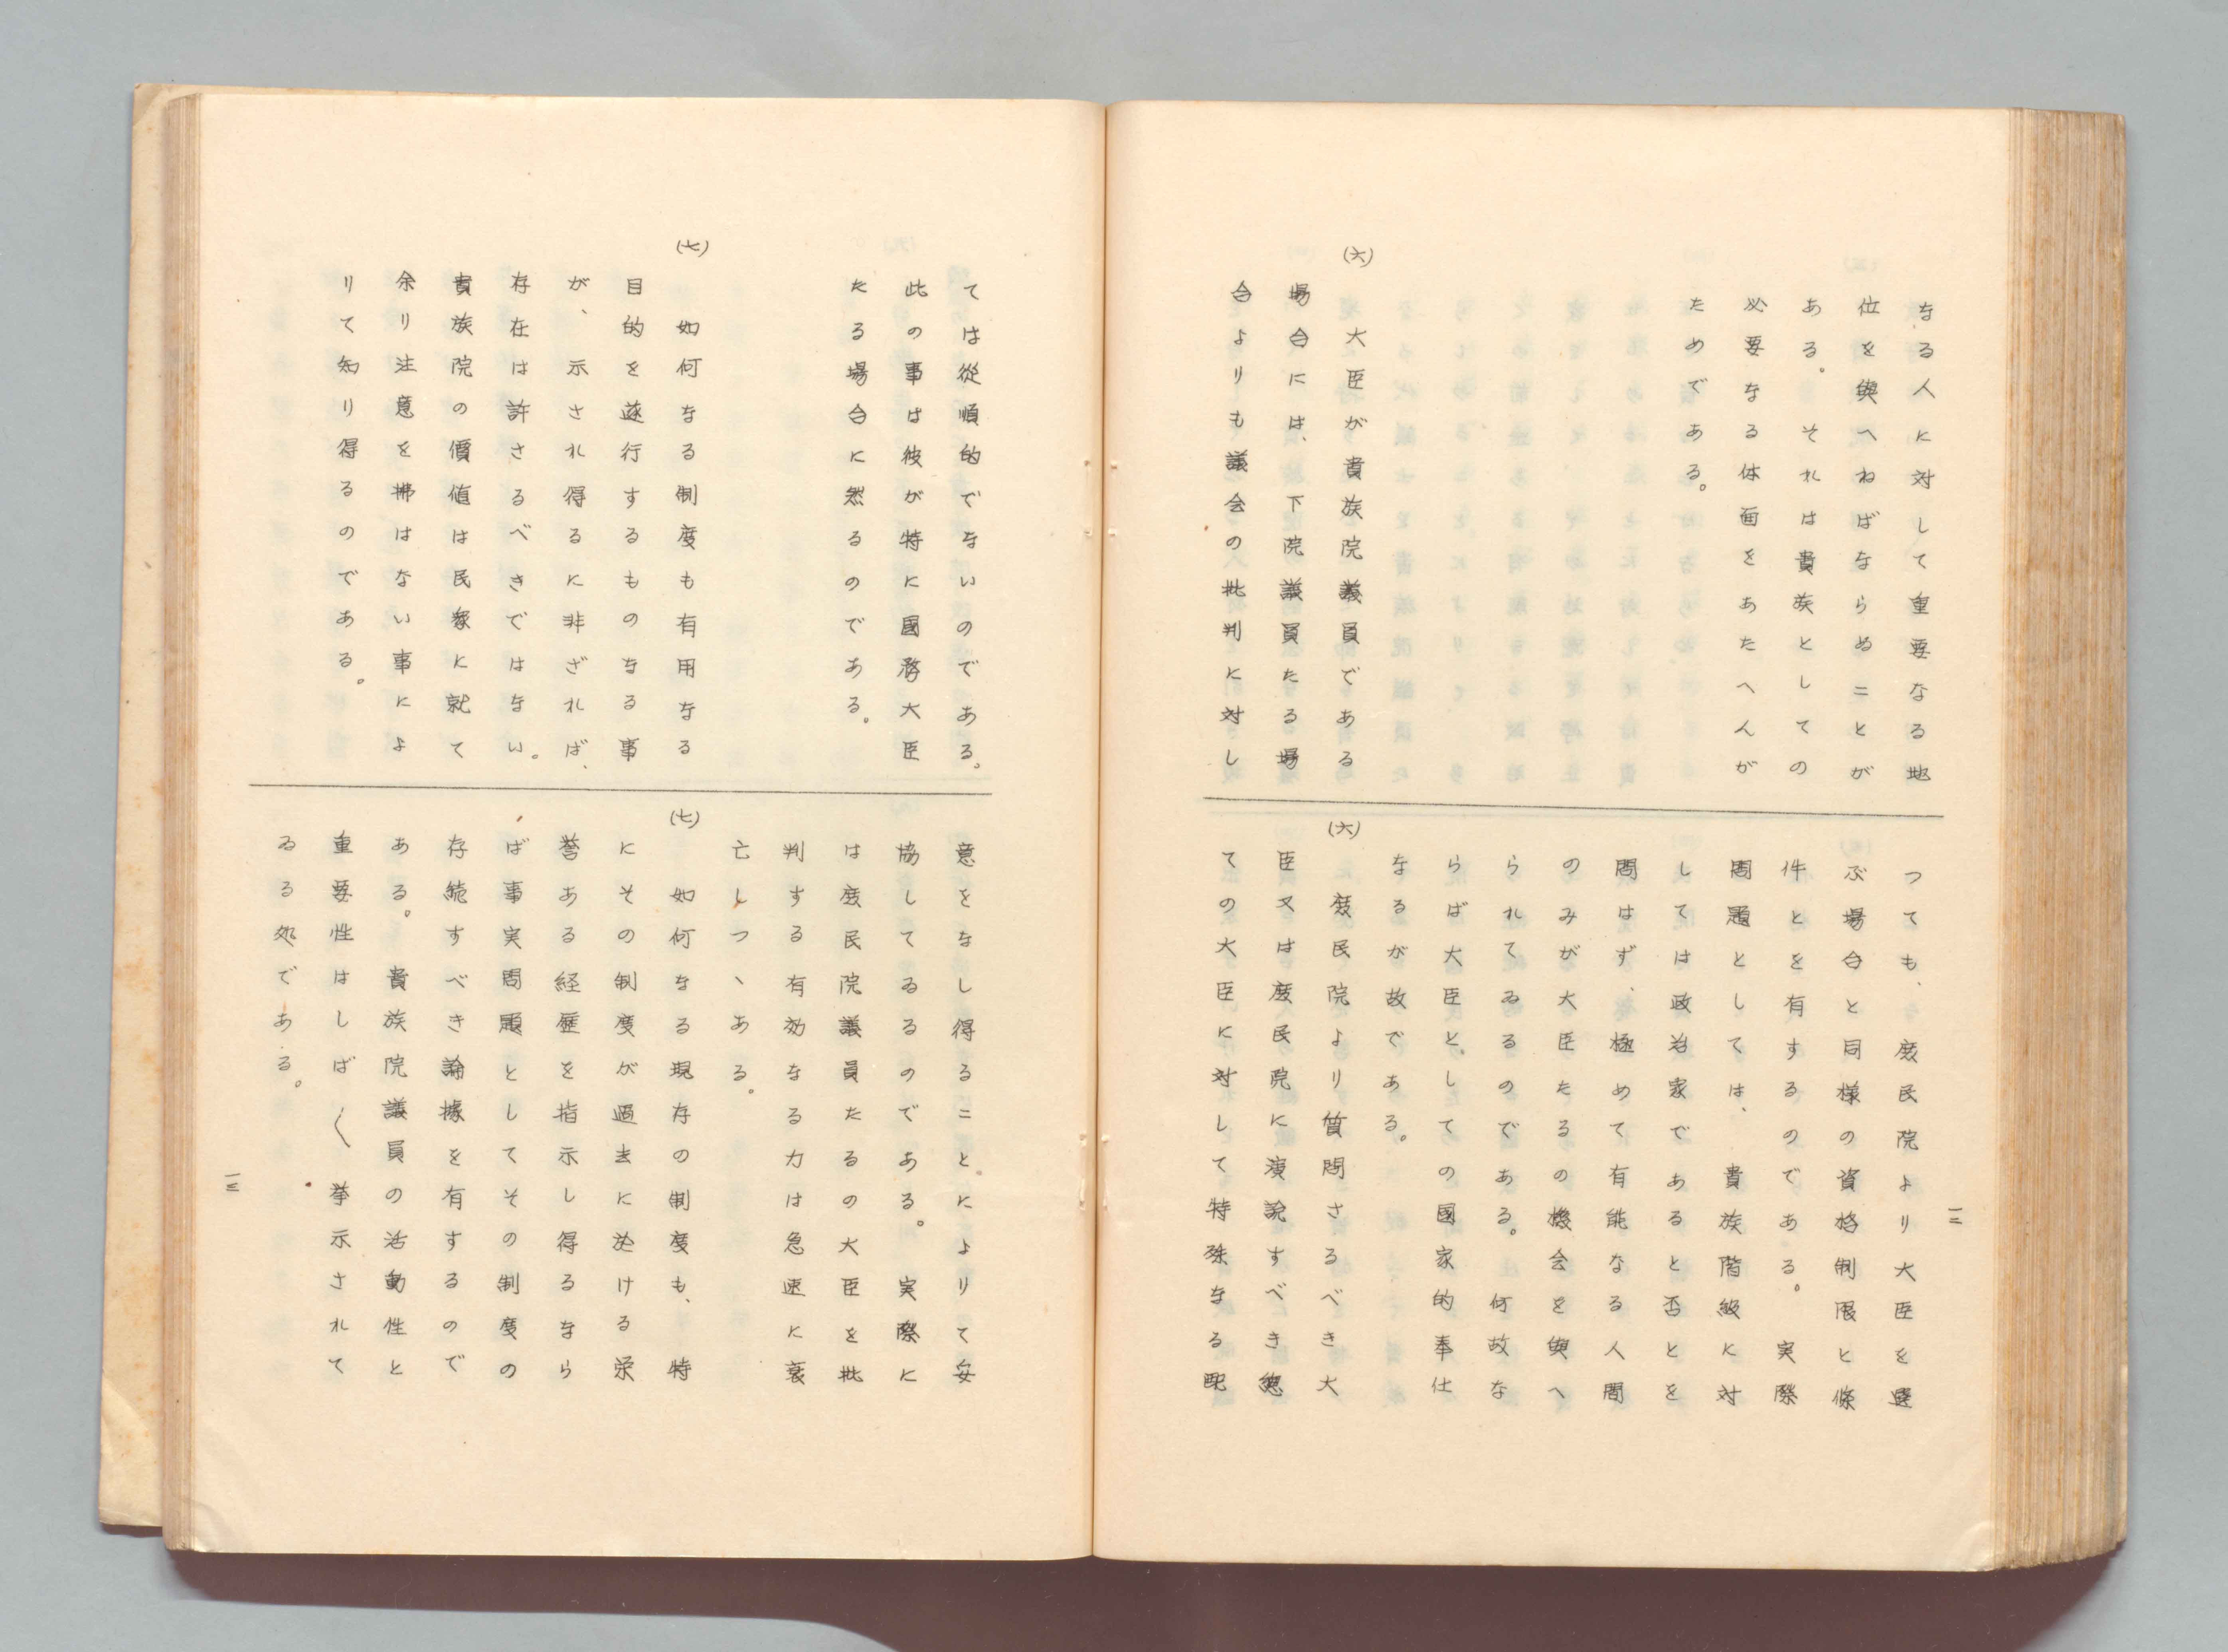 なる人に対して重要なる地
位を與へねばならぬことが
ある。それは貴族としての
必要なる体面をあたへんが
ためである。
(六)
大臣が貴族院議員である
場合には、下院議員たる場
合よりも議会の批判に対し
つても、庶民院より大臣を選
ぶ場合と同様の資格制限と條
件とを有するのである。実際
問題としては、貴族階級に対
しては政治家であると否とを
問はず、極めて有能なる人間
のみが大臣たるの機会を與へ
られてゐるのである。何故な
らば大臣としての國家的奉仕
なるが故である。
(六)
庶民院より質問さるべき大
臣又は庶民院に演説すべき總
ての大臣に対して特殊なる配
一二
ては從順的でないのである。
此の事は彼が特に國務大臣
たる場合に然るのである。
(七)
如何なる制度も有用なる
目的を遂行するものなる事
が、示され得るに非ざれば、
存在は許さるべきではない。
貴族院の價値は民衆に就て
余り注意を拂はない事によ
りて知り得るのである。
意をなし得ることによりて安
協してゐるのである。実際に
は庶民院議員たるの大臣を批
判する有効なる力は急速に衰
亡しつヽある。
(七)
如何なる現存の制度も、特
にその制度が過去に於ける栄
誉ある経歴を指示し得るなら
ば事実問題としてその制度の
存続すべき論據を有するので
ある。貴族院議員の活動性と
重要性はしば〱挙示されて
ゐる処である。
一三